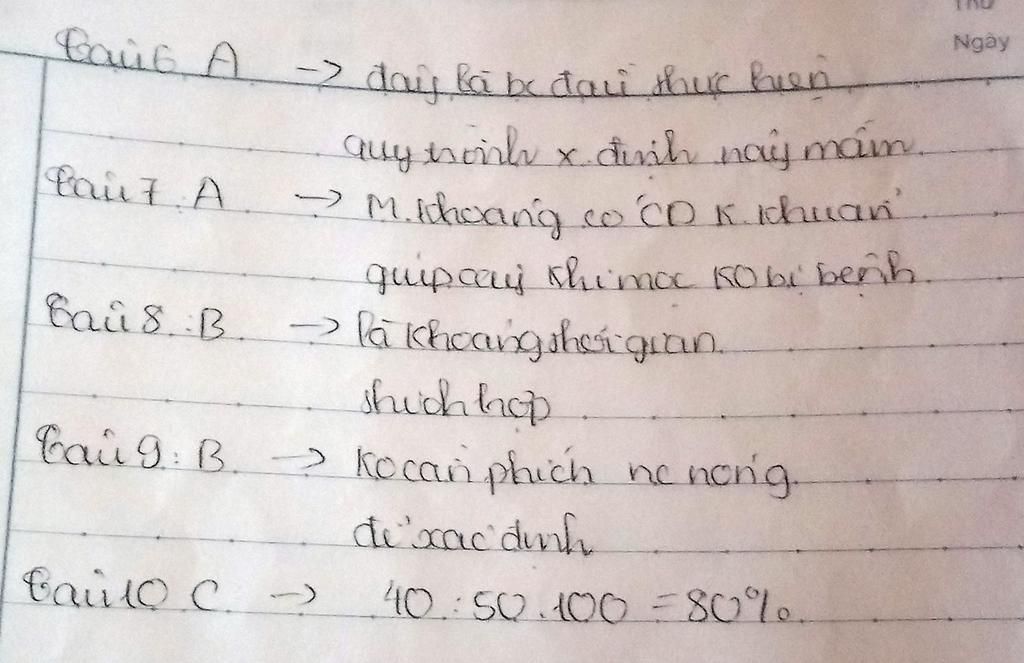 Thứ
Ngày
Câu 6 A → đây là bc đầu thực hiện
quy trình x. định nảy mầm
Câu 7. A → M. khoáng có CD K. khuẩn
giúp cây khi mọc ko bị bệnh
Câu 8: B → là khoảng thời gian
thích hợp
Câu 9: B. → ko cần phích nc nóng
để xác định
Câu 10 C. → 40 : 50 . 100 = 80%.